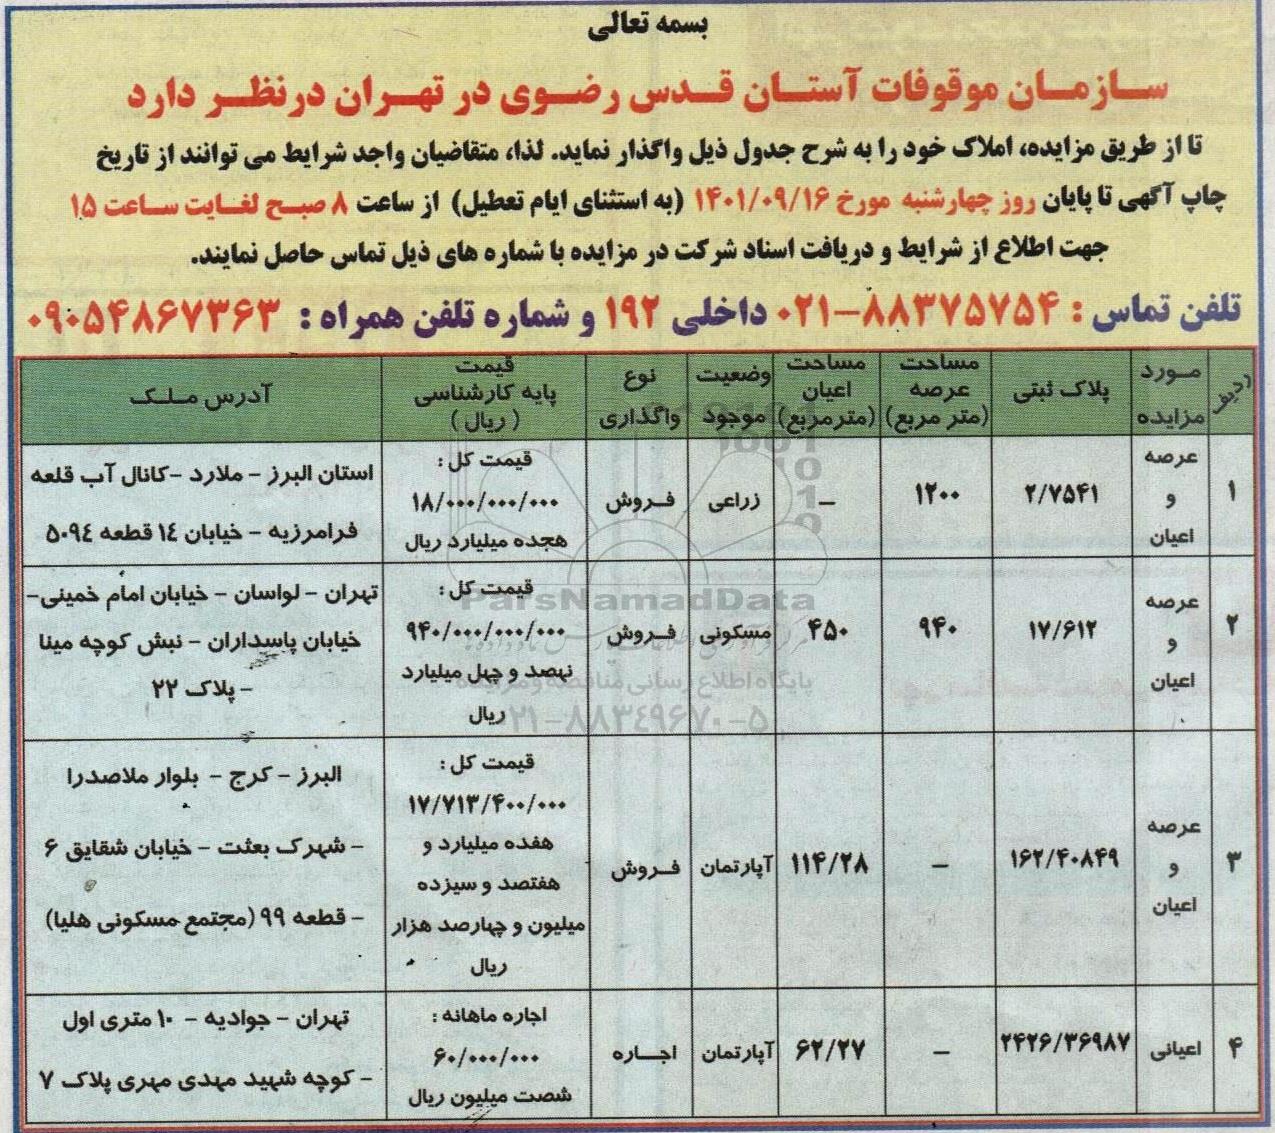 بسمه تعالی
سازمان موقوفات آستان قدس رضوی در تهران درنظر دارد
تا از طریق مزایده، املاک خود را به شرح جدول ذیل واگذار نماید. لذا، متقاضیان واجد شرایط می توانند از تاریخ
چاپ آگهی تا پایان روز چهارشنبه مورخ ۱۴۰۱/۰۹/۱۶ (به استثنای ایام تعطیل) از ساعت ۸ صبح لغایت ساعت ۱۵
جهت اطلاع از شرایط و دریافت اسناد شرکت در مزایده با شماره های ذیل تماس حاصل نمایند.
تلفن تماس : ۸۸۳۷۵۷۵۴-۰۲۱ داخلی ۱۹۲ و شماره تلفن همراه : ۰۹۰۵۴۸۶۷۳۶۳
ردیف
مورد
مزایده
پلاک ثبتی
مساحت
عرصه
(متر مربع)
مساحت
اعیان
(مترمربع)
وضعیت
موجود
نوع
واگذاری
قیمت
پایه کارشناسی
(ریال)
آدرس ملک
۱
عرصه
و
اعیان
۲/۷۵۴۱
۱۲۰۰
–
زراعی
فروش
قیمت کل :
۱۸/۰۰۰/۰۰۰/۰۰۰
هجده میلیارد ریال
استان البرز – ملارد –کانال آب قلعه
فرامرزیه – خیابان ۱۴ قطعه ۵۰۹۴
۲
عرصه
و
اعیان
۱۷/۶۱۲
۹۴۰
۴۵۰
مسکونی
فروش
قیمت کل :
۹۴۰/۰۰۰/۰۰۰/۰۰۰
نهصد و چهل میلیارد
ریال
تهران – لواسان – خیابان امام خمینی–
خیابان پاسداران – نبش کوچه مینا
– پلاک ۲۲
۳
عرصه
و
اعیان
۱۶۲/۴۰۸۴۹
–
۱۱۴/۲۸
آپارتمان
فروش
قیمت کل :
۱۷/۷۱۳/۴۰۰/۰۰۰
هفده میلیارد و
هفتصد و سیزده
میلیون و چهارصد هزار
ریال
البرز – کرج – بلوار ملاصدرا
– شهرک بعثت – خیابان شقایق ۶
– قطعه ۹۹ (مجتمع مسکونی هلیا)
۴
اعیانی
۲۴۲۶/۳۶۹۸۷
–
۶۲/۲۷
آپارتمان
اجاره
اجاره ماهانه :
۶۰/۰۰۰/۰۰۰
شصت میلیون ریال
تهران – جوادیه – ۱۰ متری اول
– کوچه شهید مهدی مهری پلاک ۷
ParsNamadData
پایگاه اطلاع رسانی مناقصه و مزایده
۰۲۱-۸۸۳۴۹۶۷۰-۵